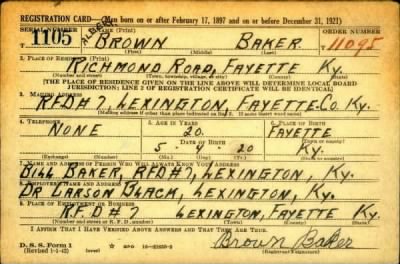 REGISTRATION CARD—(Men born on or after February 17, 1897 and on or before December 31, 1921)
SERIAL NUMBER 1. NAME (Print) ORDER NUMBER
1105 BROWN BAKER 11095
(First) (Middle) (Last)
2. PLACE OF RESIDENCE (Print)
RICHMOND ROAD, FAYETTE KY.
(Number and street) (Town, township, village, or city) (County) (State)
[THE PLACE OF RESIDENCE GIVEN ON THE LINE ABOVE WILL DETERMINE LOCAL BOARD
JURISDICTION; LINE 2 OF REGISTRATION CERTIFICATE WILL BE IDENTICAL]
3. MAILING ADDRESS
RFD#7, LEXINGTON, FAYETTE CO. KY.
[Mailing address if other than place indicated on line 2. If same insert word same]
4. TELEPHONE 5. AGE IN YEARS 6. PLACE OF BIRTH
NONE 20 FAYETTE
DATE OF BIRTH (Town or county)
5 - 4 - 20 KY.
(Exchange) (Number) (Mo.) (Day) (Yr.) (State or country)
7. NAME AND ADDRESS OF PERSON WHO WILL ALWAYS KNOW YOUR ADDRESS
BILL BAKER, RFD#7, LEXINGTON, KY.
8. EMPLOYER'S NAME AND ADDRESS
DR CARSON BLACK, LEXINGTON, KY.
9. PLACE OF EMPLOYMENT OR BUSINESS
R.F.D #7 LEXINGTON, FAYETTE KY
(Number and street or R. F. D. number) (Town) (County) (State)
I AFFIRM THAT I HAVE VERIFIED ABOVE ANSWERS AND THAT THEY ARE TRUE.
D. S. S. Form 1
(Revised 1-1-42) (over)
Brown Baker
(Registrant's signature)